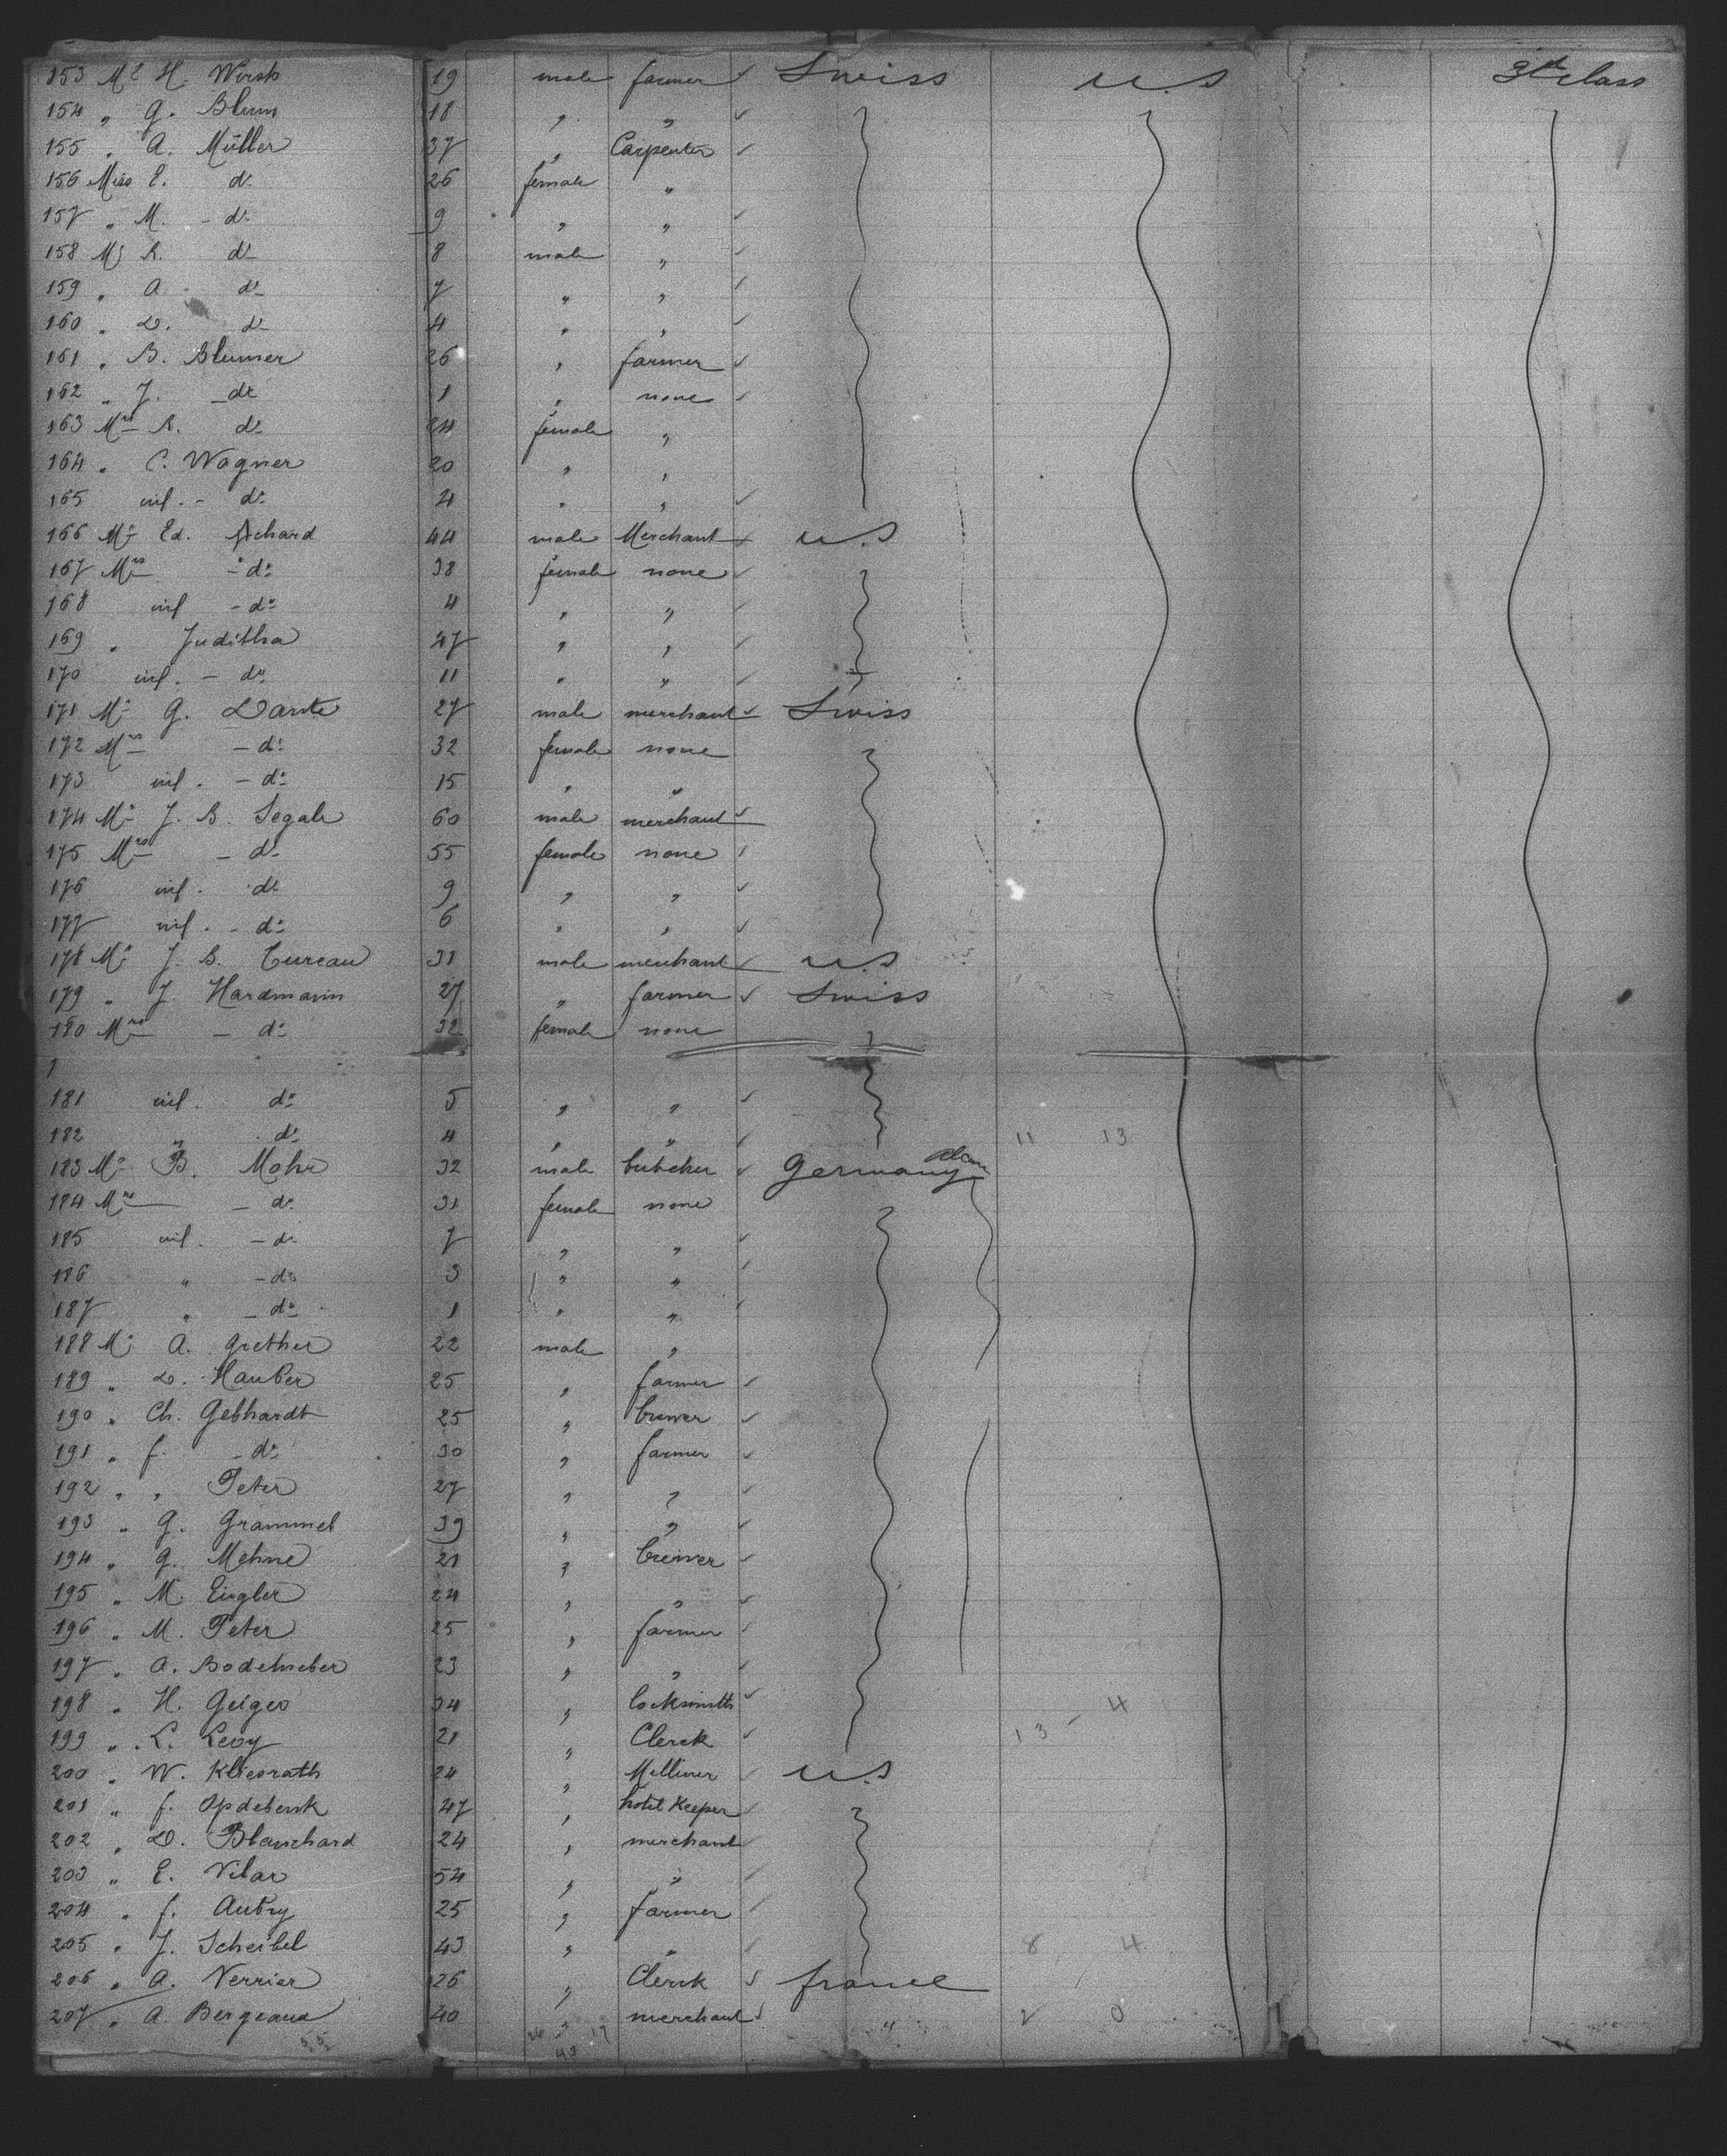 153 Mr H. Wirsh 19 male farmer ✓ Swiss U.S 3th class
154 „ G. Blum 18 „ „ ✓
155 „ A. Müller 37 „ Carpenter ✓
156 Miss E. do 26 female „
157 „ M. - do 9 „ „ ✓
158 Mr R. do 8 male „ ✓
159 „ A. - do 7 „ „ ✓
160 „ D. do 4 „ „ ✓
161 „ B. Blumer 26 „ farmer ✓
162 „ J. - do 1 „ none ✓
163 Mrs R. do 24 female „
164 „ C. Wagner 20 „ „
165 inf. - do 4 „ „ ✓
166 Mr Ed. Achard 44 male Merchant ✓ U.S
167 Mrs - do 38 female none ✓
168 inf - do 4 „ „ ✓
169 „ Juditha 47 „ „ ✓
170 inf. - do 11 „ „ ✓
171 Mr G. Dante 27 male merchant ✓ Swiss
172 Mrs - do 32 female none
173 inf. - do 15 „ „
174 Mr J. B. Segale 60 male merchant ✓
175 Mrs - do 55 female none
176 inf. do 9 „ „ ✓
177 inf. - do 6 „ „ ✓
178 Mr J. B. Cureau 31 male merchant ✓ U.S
179 „ J. Hardmann 27 „ farmer ✓ Swiss
180 Mrs - do 32 female none
1
181 inf. do 5 „ „ ✓
182 „ do 4 „ „ ✓ 11 13
183 Mr B. Mohr 32 male butcher ✓ Germany
184 Mrs - do 31 female none
185 inf. - do 7 „ „ ✓
186 „ - do 3 „ „ ✓
187 „ - do 1 „ „ ✓
188 Mr A. Grether 22 male „
189 „ D. Hauber 25 „ farmer ✓
190 „ Ch. Gebhardt 25 „ brewer ✓
191 „ f. - do 30 „ farmer ✓
192 „ „ Peter 27 „ „ ✓
193 „ G. Grammel 39 „ „ ✓
194 „ G. Mehne 21 „ brewer ✓
195 „ M. Eingler 24 „ „ ✓
196 „ M. Peter 25 „ farmer ✓
197 „ A. Bodehneber 23 „ „ ✓
198 „ H. Geiger 34 „ locksmith ✓ 4
199 „ L. Levy 21 „ Clerck ✓ 13 -
200 „ W. Kliesrath 24 „ Milliner ✓ U.S
201 „ f. Opdebenk 47 „ hotel Keeper ✓
202 „ D. Blanchard 24 „ merchant ✓
203 „ E. Vilar 54 „ „ ✓
204 „ f. Aubry 25 „ farmer ✓
205 „ J. Scheibel 43 „ „ ✓ 8 4
206 „ A. Verrier 26 „ Clerck france
207 „ A. Bergeaud 40 „ merchant „ 2 0
26 17
43